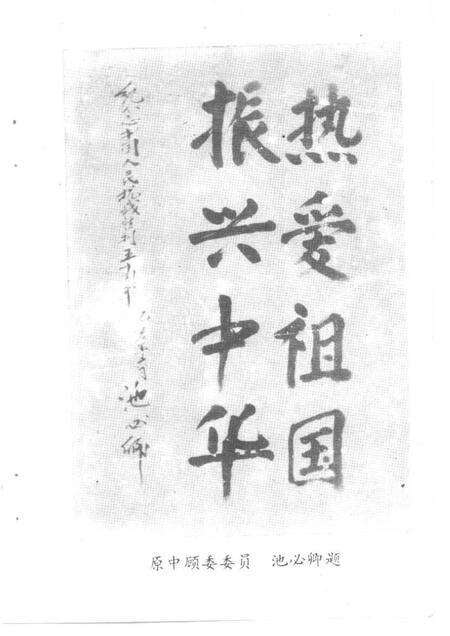 热爱祖国
振兴中华
纪念中国人民抗战胜利五十周年
池必卿
原中顾委委员 池必卿题